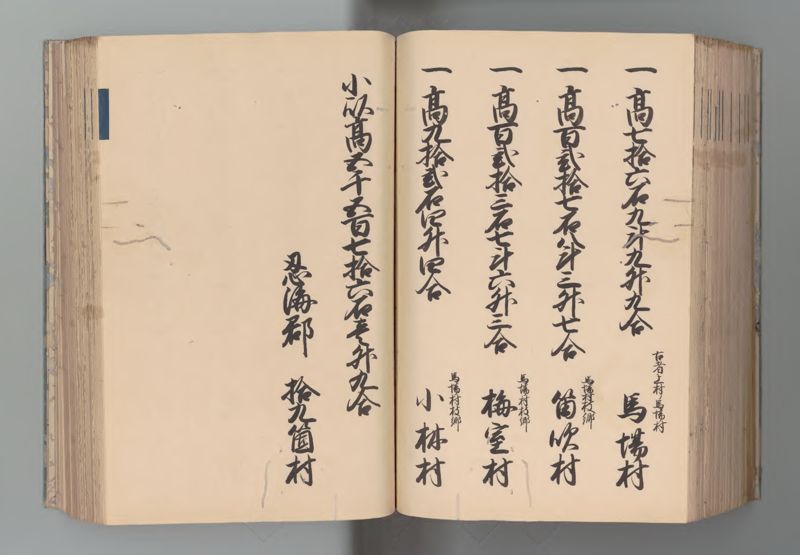 一高七拾六石九斗九升九合
古者上村馬場村
馬場村
一高百弐拾七石八斗三升七合
馬場村枝郷
笛吹村
一高百弐拾三石七斗六升三合
馬場村枝郷
梅室村
一高九拾弐石四升四合
馬場村枝郷
小林村
小以高五千五百七拾六石壱升九合
忍海郡 拾九箇村